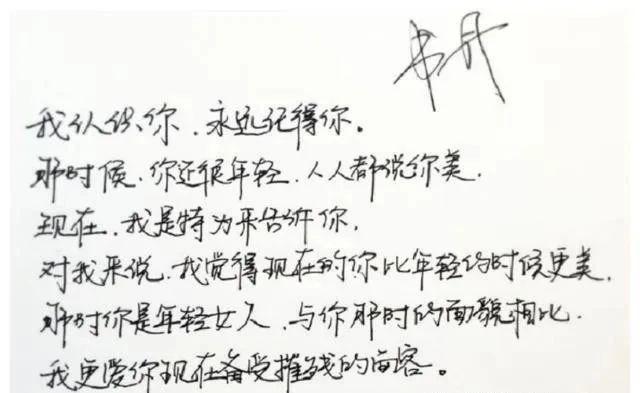 韦丹
我认识你、永远记得你。
那时候、你还很年轻、人人都说你美、
现在、我是特为来告诉你、
对我来说、我觉得现在的你比年轻的时候更美、
那时你是年轻女人、与你那时的面貌相比、
我更爱你现在备受摧残的面容。